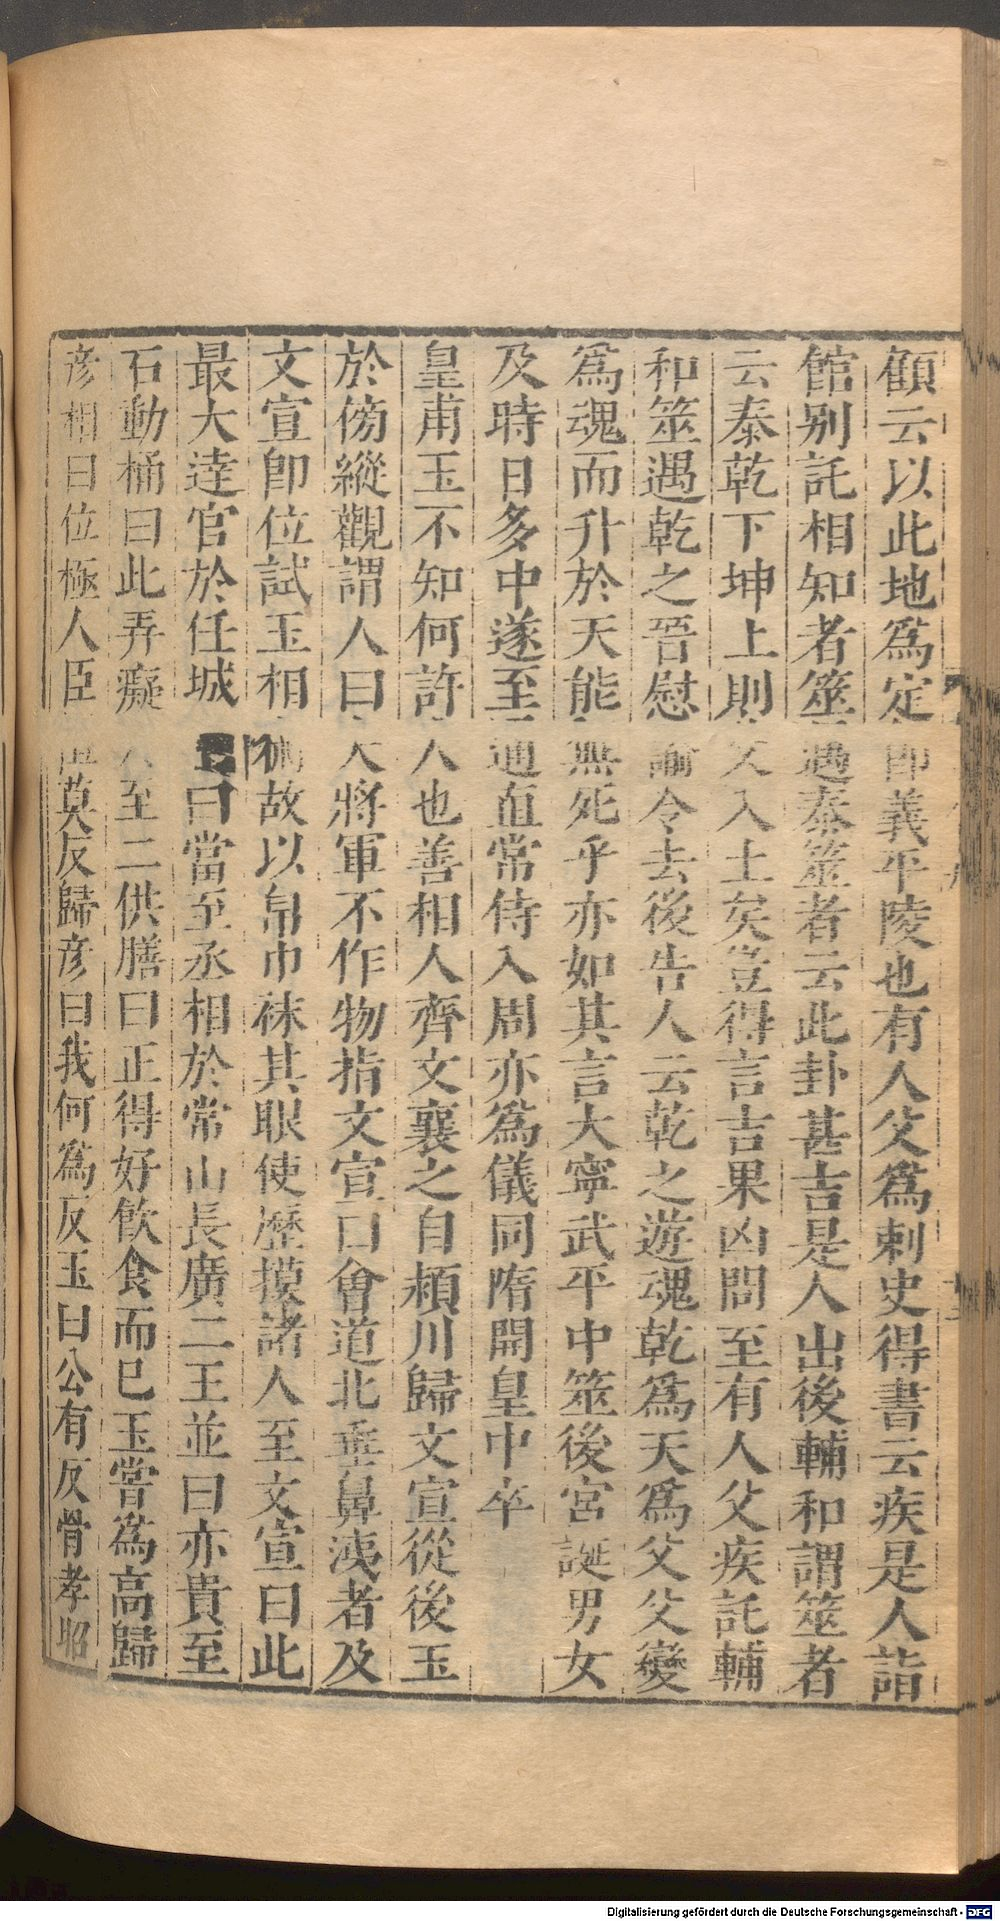 顧云以此地爲定即義平陵也有人父爲剌史得書云疾是人詣
館别託相知者筮遇泰筮者云此卦甚吉是人出後輔和謂筮者
云泰乾下坤上則父入土矣豈得言吉果凶問至有人父疾託輔
和筮遇乾之晉慰諭令去後告人云乾之遊魂乾爲天爲父父變
爲魂而升於天能無死乎亦如其言大寧武平中筮後宮誕男女
及時日多中遂至通直常侍入周亦爲儀同隋開皇中卒
皇甫玉不知何許人也善相人齊文襄之自頴川歸文宣從後玉
於傍縱觀謂人曰大將軍不作物指文宣曰會道北垂鼻洟者及
文宣卽位試玉相術故以帛巾袜其眼使歷摸諸人至文宣曰此
最大逹官於任城曰當至丞相於常山長廣二王並曰亦貴至
石動桶曰此弄癡人至二供膳曰正得好飲食而已玉嘗爲高歸
彦相曰位極人臣莫反歸彦曰我何爲反玉曰公有反骨孝昭
Digitalisierung gefördert durch die Deutsche Forschungsgemeinschaft - DFG